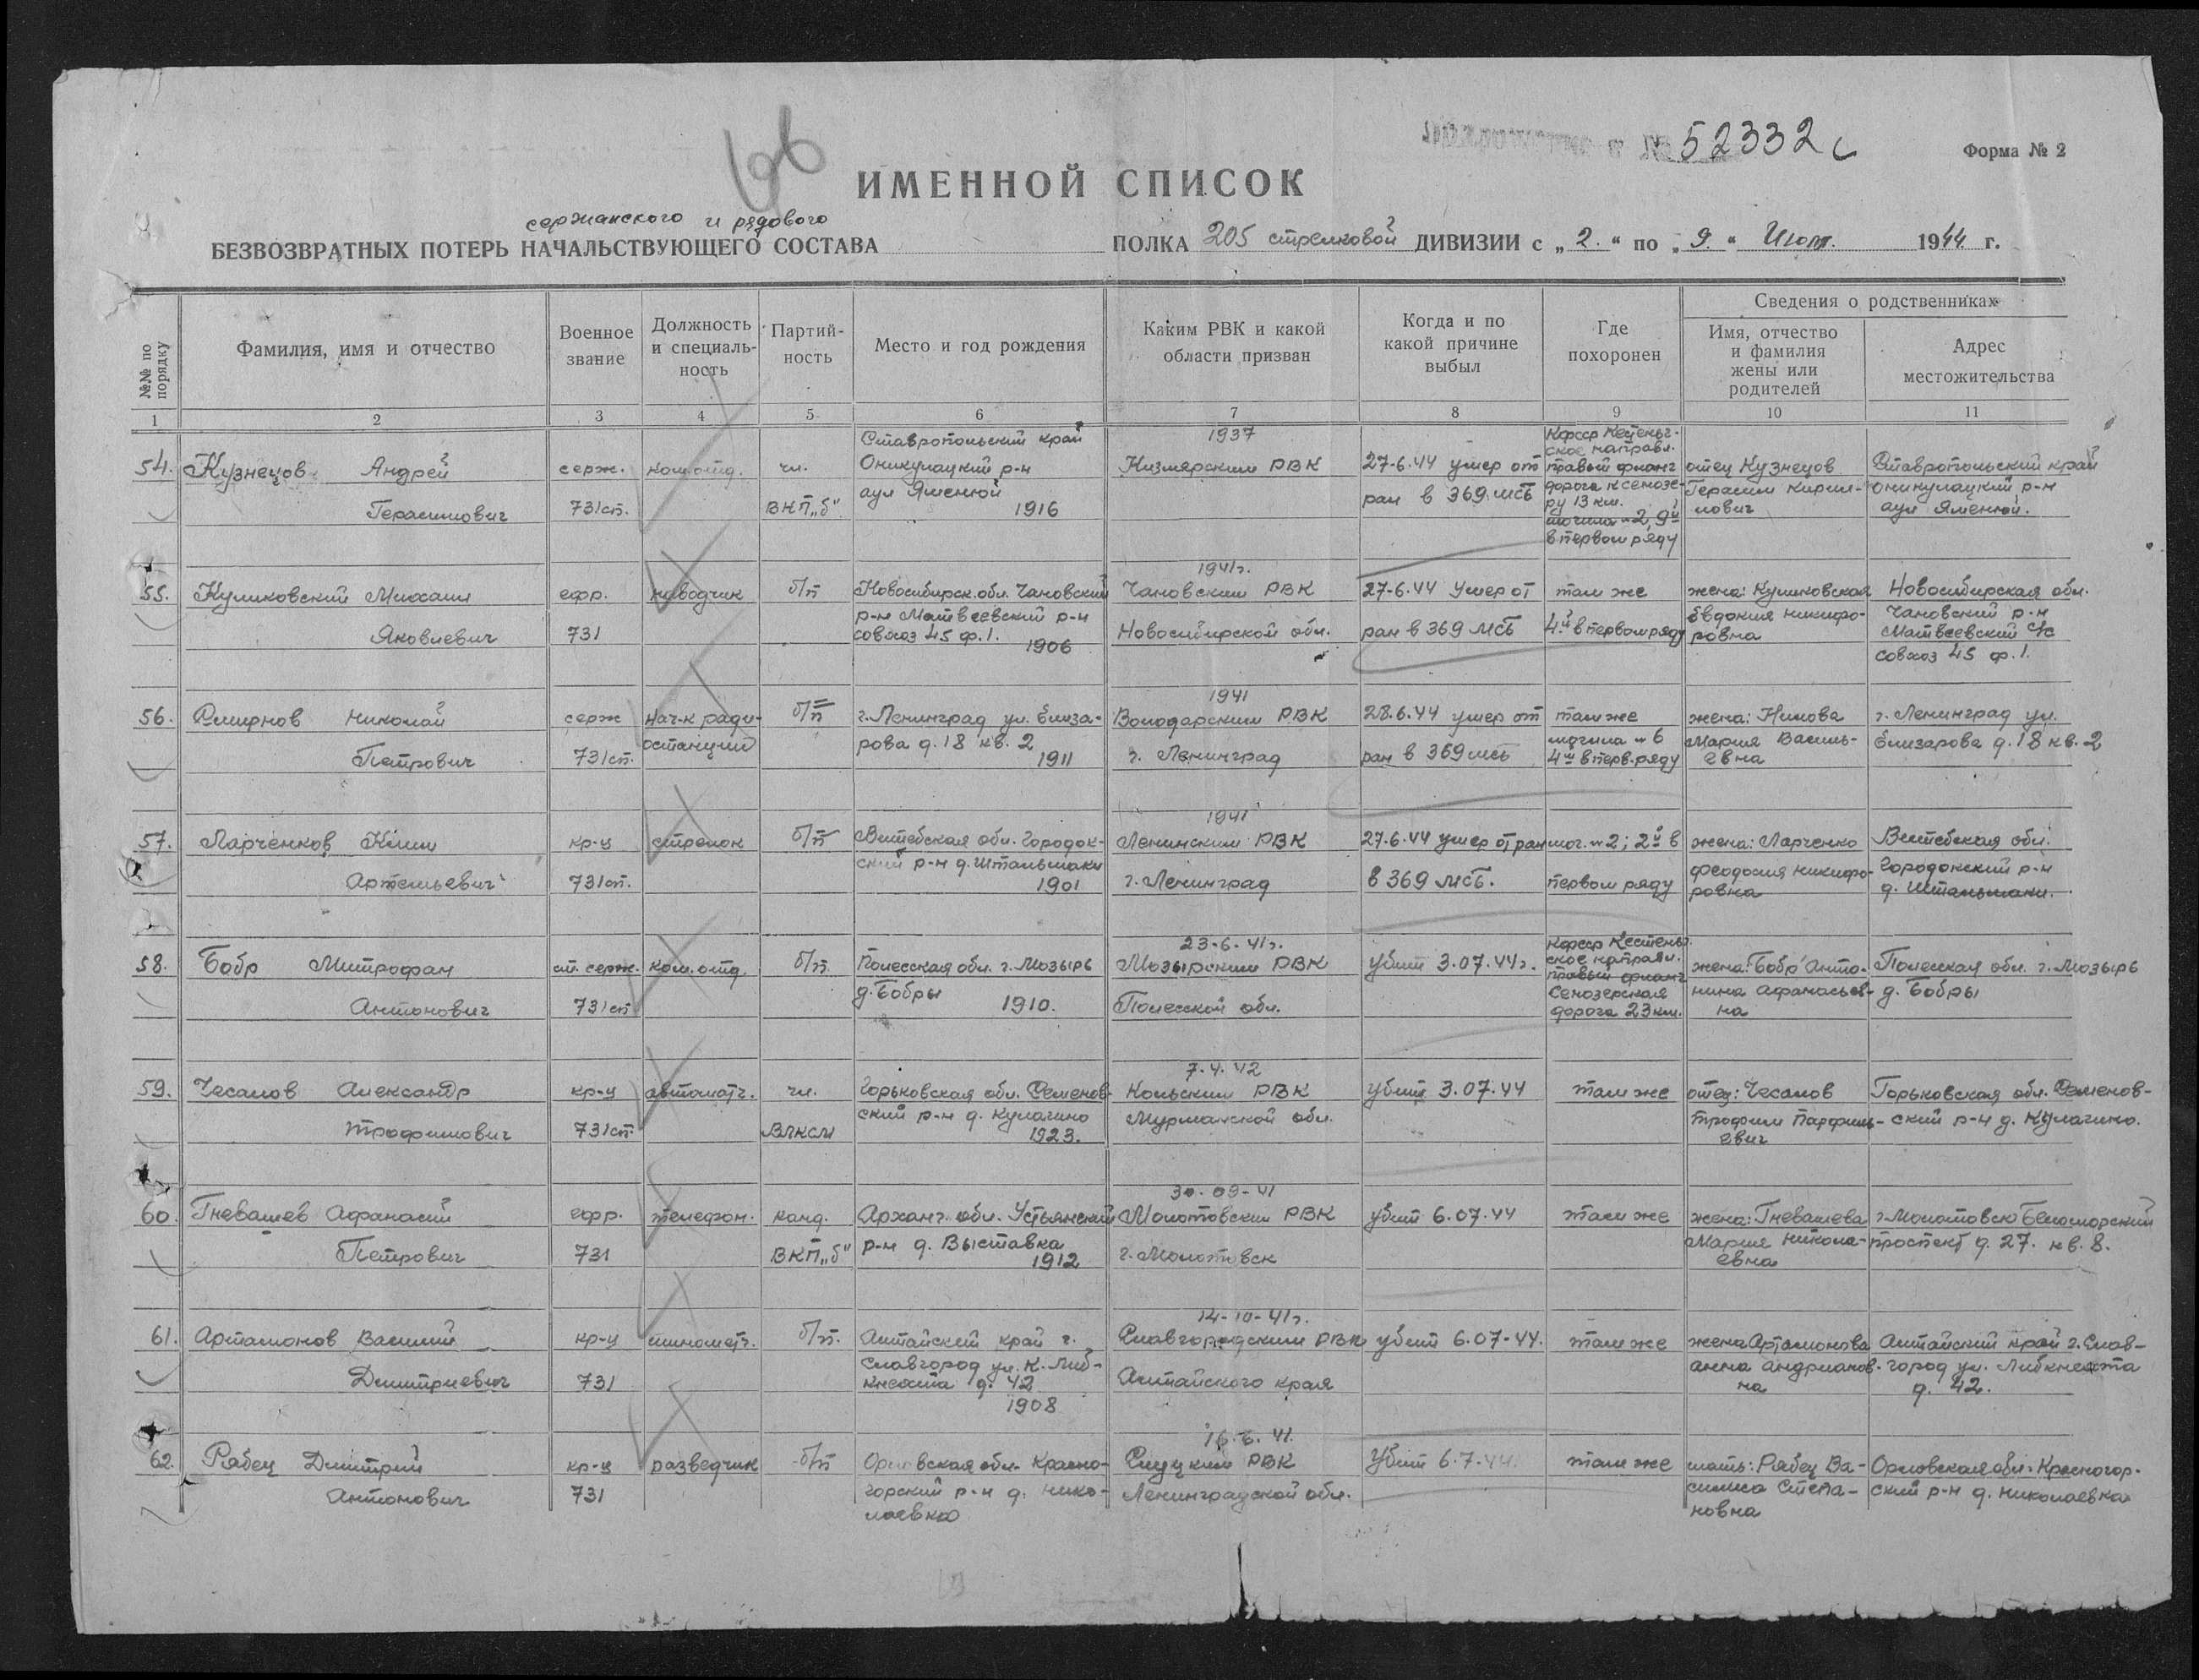 66
№ 52332с
Форма № 2
ИМЕННОЙ СПИСОК
сержанского и рядового
БЕЗВОЗВРАТНЫХ ПОТЕРЬ НАЧАЛЬСТВУЮЩЕГО СОСТАВА ПОЛКА 205 стрелковой ДИВИЗИИ с „2.“ по „9.“ Июля 1944 г.
№№ по порядку
Фамилия, имя и отчество
Военное звание
Должность и специаль-ность
Партий-ность
Место и год рождения
Каким РВК и какой области призван
Когда и по какой причине выбыл
Где похоронен
Сведения о родственниках
Имя, отчество и фамилия жены или родителей
Адрес местожительства
1 2 3 4 5 6 7 8 9 10 11
54. Кузнецов Андрей
Герасимович
серж.
731сп.
ком.отд.
чл.
ВКП„б“
Ставропольский край
р-н
аул
1916
1937
Кизлярским РВК
27-6.44 умер от
ран в 369 мсб
Кфсср Кестеньг-
ское направл.
правый фланг
дорога к Сенозе-
ру 13 км.
могила-2, 9й
в первом ряду
отец Кузнецов
Герасим Кирил-
лович
Ставропольский край
р-н
аул
55. Куликовский Михаил
Яковлевич
ефр.
731
наводчик
б/п
Новосибирск.обл. Чановский
р-н Матвеевский р-н
совхоз 45 ф.1.
1906
1941г.
Чановским РВК
Новосибирской обл.
27-6.44 Умер от
ран в 369 МСБ
там же
4й в первом ряду
жена: Куликовская
Евдокия Никифо-
ровна
Новосибирская обл.
Чановский р-н
Матвеевский с/с
совхоз 45 ф.1.
56. Смирнов Николай
Петрович
серж
731сп.
нач-к ради-
останции
б/п
г.Ленинград ул. Елиза-
рова д.18 кв. 2
1911
1941
Володарским РВК
г. Ленинград
28.6.44 умер от
ран в 369 мсб
там же
могила-6
4й в перв.ряду
жена:
Мария Василь-
евна
г. Ленинград ул.
Елизарова д.18 кв.2
57. Ларченков Клим
Артемьевич
кр-ц
731сп.
стрелок
б/п
Витебская обл. Городок-
ский р-н д.
1901
1941
Ленинским РВК
г. Ленинград
27.6.44 умер от ран
в 369 МСБ.
мог.-2; 2й в
первом ряду
жена: Ларченко
Феодосия Никифо-
ровна
Витебская обл.
Городокский р-н
д.
58. Бобр Митрофан
Антонович
ст. серж.
731сп
ком.отд.
б/п.
Полесская обл. г. Мозырь
д. Бобры
1910.
23-6-41г.
Мозырским РВК
Полесской обл.
убит 3.07.44г.
Кфсср Кестеньг-
ское направл.
правый фланг
Сенозерская
дорога 23км.
жена: Бобр Анто-
нина Афанасьев-
на
Полесская обл. г. Мозырь
д. Бобры
59. Чесалов Александр
Трофимович
кр-ц
731сп.
автоматч.
чл.
ВЛКСМ
Горьковская обл. Семенов-
ский р-н д. Кулагино
1923.
7.4.42
Кольским РВК
Мурманской обл.
убит 3.07.44
там же
отец: Чесалов
Трофим Парфиль-
евич
Горьковская обл. Семенов-
ский р-н д. Кулагино.
60. Гневашев Афанасий
Петрович
ефр.
731
телефон.
канд.
ВКП„б“
Арханг. обл. Устьянский
р-н д. Выставка
1912
30-09-41
Молотовским РВК
г. Молотовск
убит 6.07.44
там же
жена: Гневашева
Мария Никола-
евна
г. Молотовск Беломорский
проспект д. 27. кв. 8.
61. Артамонов Василий
Дмитриевич
кр-ц
731
минометч.
б/п.
Алтайский край г.
Славгород ул. К. Либ-
кнехта д. 42
1908
14-10-41г.
Славгородским РВК
Алтайского края
убит 6.07-44.
там же
жена Артамонова
Анна Андрианов-
на
Алтайский край г. Слав-
город ул. Либкнехта
д. 42.
62. Рябец Дмитрий
Антонович
кр-ц
731
разведчик
б/п
Орловская обл. Красно-
горский р-н д. Нико-
лаевка
16.6.41.
Слуцким РВК
Ленинградской обл.
Убит 6.7.44.
там же
мать: Рябец Ва-
силиса Степа-
новна
Орловская обл. Красногор-
ский р-н д. Николаевка